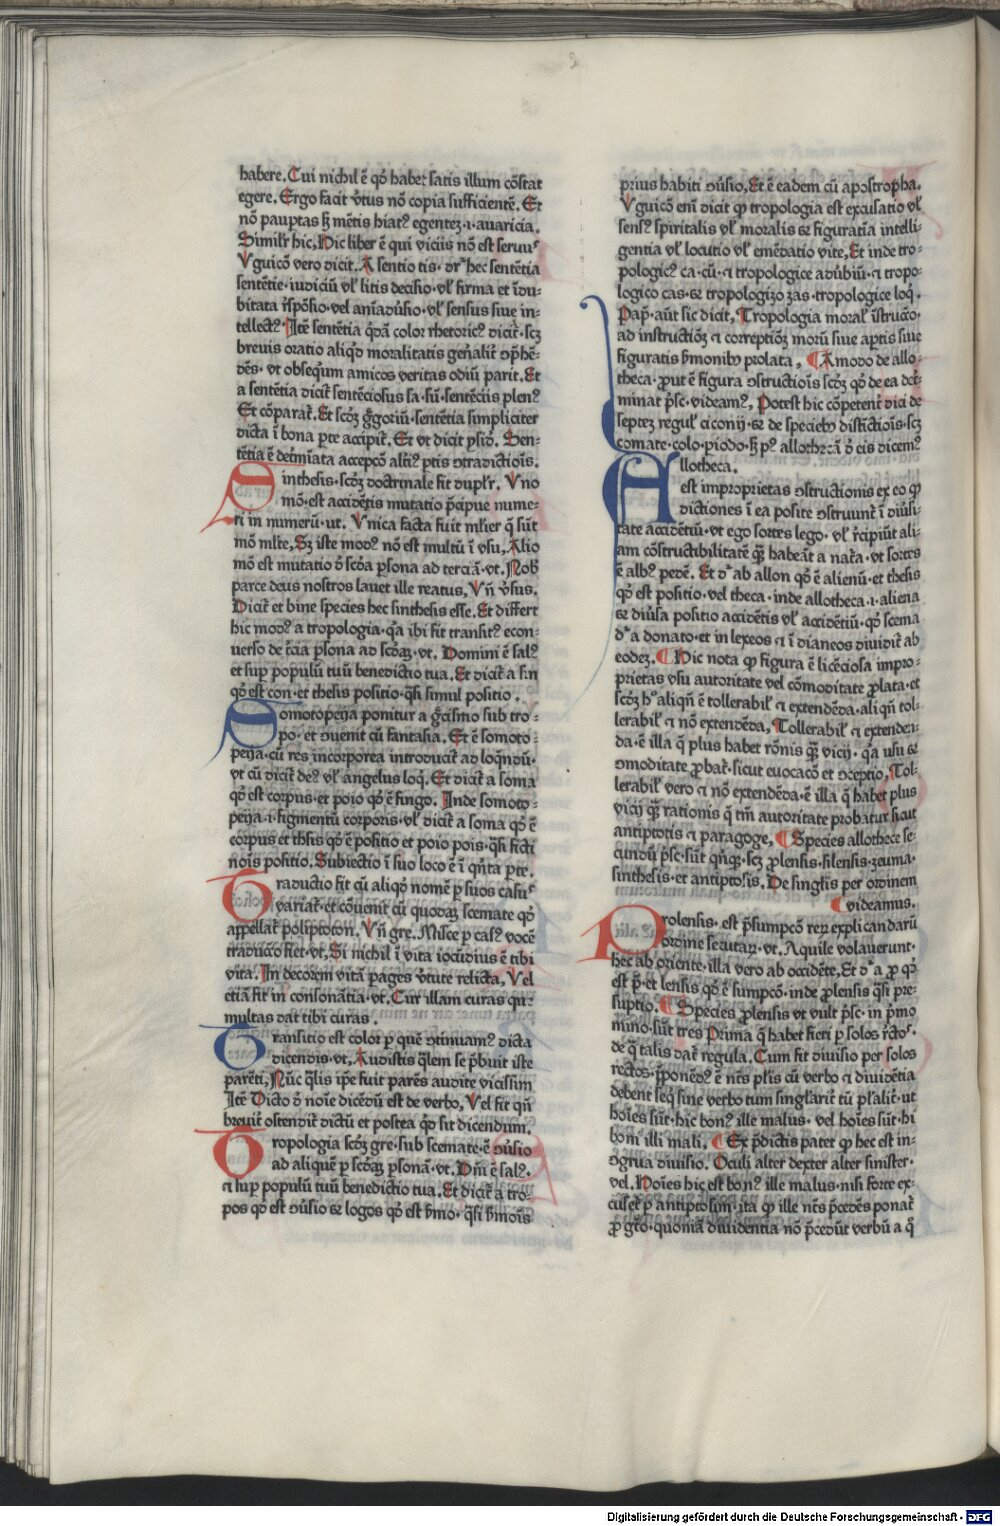 habere. Cui nichil ē qd' habet satis illum cōstat
egere. Ergo facit v̓tus nō copia sufficientē. Et
nō paup̄tas sꝫ mētis hiatꝰ egentez ·i· auaricia.
Similr̄ hic. Hic liber ē qui viciis nō est seruuꝰ
Vguicō vero dicit. Assentio tis· dr̄ hec sentētia
sentētie· iudiciū vl' litis decisio· vl' firma et īdu-
bitata r̄sposio· vel aniaduersio· vl' sensus siue in-
tellectꝰ· Itē sentētia qdā color rhetoricꝰ dicit· scꝫ
breuis oratio aliqd moralitatis gen̄alit' ꝯphē-
dēs· vt obseqm amicos veritas odiū parit. Et
a sentētia dicit sentēciosus sa· sū· sentēciis plenꝰ
Et cōparat. Et scd'm ḡgoriū· sentētia simpliciter
dicta ī bona pte accipit. Et vt dicit ysid. Sen-
tētia ē detmīata accepcō altiꝰ ptis ꝯtradictiōis.
Sinthesis· scd'm doctrinale fit duplr̄. Vno
mō· est accidētis mutatio p̄cipue nume-
ri in numerū· ut. Vnica facta fuit mlier q̄ sūt
mō mlte. Sꝫ iste modꝰ nō est multū ī vsu. Alio
mō est mutatio d' scd'a psona ad terciā· vt. Nob'
parce deus nostros lauet ille reatus. Vn̄ v̓sus.
Dicit et bine species hec sinthesis esse. Et differt
hic modꝰ a tropologia· qa ibi fit transitꝰ econ-
uerso de t̓cia psona ad scd'aꝫ· vt. Domini ē salꝰ
et sup populū tuū benedictio tua. Et dicit a sin
qd' est con· et thesis positio· qsi simul positio.
Somotopeya ponitur a ḡcismo sub tro-
po· et ꝯuenit cū fantasia. Et ē somoto-
peya· cū res incorporea introducit ad loqndū·
vt cū dicit deꝰ vl' angelus loq. Et dicit a soma
qd' est corpus· et poio qd' ē fingo. Inde somoto-
peya ·i· figmentū corporis· vl' dicit a soma qd' ē
corpus et thesis qd' ē positio et poio pois· qsi ficti
nois positio. Subiectio ī suo loco ē ī qnta pte.
Traductio fit cū aliqd' nomē p suos casuꝰ
variat· et cōuenit cū quodaꝫ scemate qd'
appellat poliptoton. Vn̄ gre. Misce p casꝰ vocē
traduccō fiet· vt. Si nichil ī vita iocūdius ē tibi
vita. In decorem vitā pages v̓tute relicta. Vel
etiā fit in consonātia· vt. Cur illam curas que
multas dat tibi curas.
Transitio est color p quē ꝯtinuamꝰ dicta
dicendis· vt. Audistis qlem se p̄buit iste
parēti. Nūc qlis ipe fuit parēs audite vicissim
Itē Dicto d' noīe dicēdū est de verbo. Vel fit qn̄
breuit' ostendit dictū et postea qd' sit dicendum.
Tropologia scd'm gre· sub scemate· ē ꝯu̓sio
ad aliquē p scd'aꝫ psonā· vt. Dn̄i ē salꝰ·
⁊ sup populū tuū benedictio tua. Et dicit a tro-
pos qd' est ꝯu̓sio ⁊ logos qd' est s̓mo· qsi s̓mōis
prius habiti ꝯu̓sio. Et ē eadem cū apostropha.
Vguicō eni dicit ꝙ tropologia est excusatio vl'
sensꝰ spiritalis vl' moralis ⁊ figuratiua intelli-
gentia vl' locutio vl' emēdatio vite. Et inde tro-
pologicꝰ ca· cū· ⁊ tropologice adu̓biū· ⁊ tropo-
logico cas· ⁊ tropologizo zas· tropologice loq.
Pap· aūt sic dicit. Tropologia moral' īstruccō·
ad instructiōꝫ ⁊ correptiōꝫ morū siue aptis siue
figuratis s̓monib' prolata. Amodo de allo-
theca· prout ē figura ꝯstructiōis scd'm qd' de ea det-
minat p̄sc· videamꝰ. Potest hic cōpetent' dici de
septeꝫ regul' ciconij· ⁊ de specieb' distictiōis· scꝫ
comate· colo· piodo· sꝫ pꝰ allothecā d' eis dicemꝰ
Allotheca.
est improprietas ꝯstructionis ex eo ꝙ
dictiones ī ea posite ꝯstruunt' ī diu̓si-
tate accidētiū· vt ego sortes lego· vl' r̓cipiūt ali-
am cōstructibilitatē qꝫ habeāt a nata· vt sortes
ē albꝰ pedē. Et dr̄ ab allon qd' ē alienū· et thesis
qd' est positio· vel theca· inde allotheca ·i· aliena
⁊ diu̓sa positio accidētis vl' accidētiū· qd' scema
dr̄ a donato· et in lexeos ⁊ ī dianeos diuidit ab
eodeꝫ. Hic nota ꝙ figura ē licēciosa impro-
prietas vsu autoritate vel cōmoditate prolata· et
scd'm hꝰ aliqn̄ ē tollerabil' ⁊ extendēda· aliqn̄ tol-
lerabil' ⁊ nō extendēda. Tollerabil' ⁊ extenden-
da· ē illa q̄ plus habet rōnis qꝫ vicij· qa usu ⁊
ꝯmoditate probat· sicut euocacō et ꝯceptio. Tol-
lerabil' vero ⁊ nō extendēda· ē illa q̄ habet plus
vicij qꝫ rationis q̄ tm̄ autoritate probatur sicut
antiptotis ⁊ paragoge. Species allothece se-
cundū p̄sc· sūt qnqꝫ· scꝫ prolensis· silensis· zeuma·
sinthesis· et antiptosis. De singlis per ordinem
videamus.
Prolensis· est p̄sumpcō reꝝ explicandarū
ordine secutaꝝ· vt. Aquile volauerunt·
hec ab oriente· illa vero ab occidēte. Et dr̄ a pro qd'
est p̄· et lensis qd' ē sumpcō· inde prolensis qsi pre-
suptio. Species prolensis vt vult p̄sc· in p̄mo
mino· sūt tres Prima q̄ habet fieri p solos r̓ctoꝰ·
de q talis dat regula. Cum fit diuisio per solos
rectos· p̄ponēdꝰ ē nt̄s plis cū verbo ⁊ diuidētia
debent seq sine verbo tum singlarit' tū plalit'· ut
hoīes sūt· hic bonꝰ ille malus· vel hoīes sūt· hi
boni illi mali. Ex p̄dictis patet ꝙ hec est in-
ꝯgrua diuisio. Oculi alter dexter alter sinister·
vel. Hoīes hic est bonꝰ ille malus· nisi forte ex-
cuset p antiptosim· ita ꝙ ille nt̄s p̄cedēs ponat'
pro gto· quoniā diuidentia nō p̄cedūt verbū a q
Digitalisierung gefördert durch die Deutsche Forschungsgemeinschaft - DFG